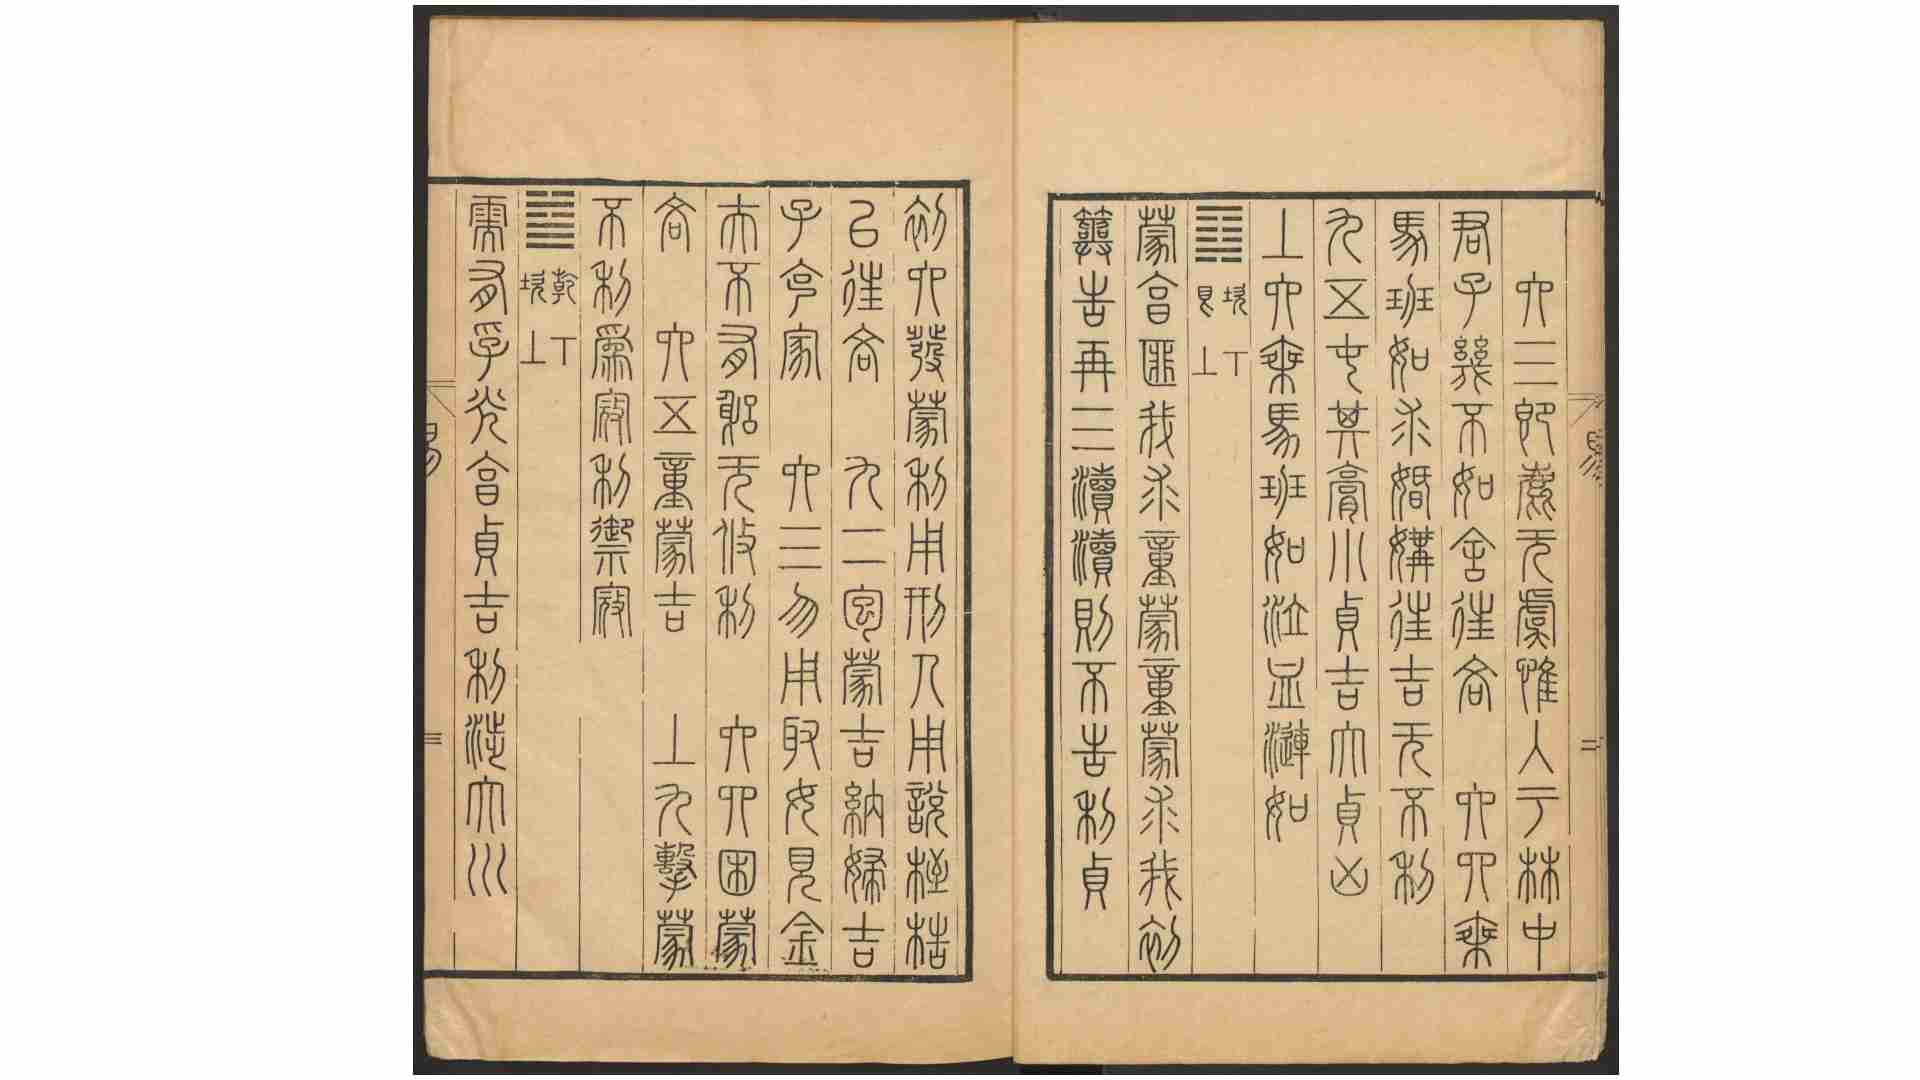 六三即鹿无虞惟入于林中
君子幾不如舍往吝　六四乘
馬班如求婚媾往吉无不利
九五屯其膏小貞吉大貞凶
上六乘馬班如泣血漣如
䷃ 坎下艮上
蒙亨匪我求童蒙童蒙求我初
筮告再三瀆瀆則不告利貞
易 二
初六發蒙利用刑人用說桎梏
以往吝　九二包蒙吉納婦吉
子克家　六三勿用取女見金
夫不有躬无攸利　六四困蒙
吝　六五童蒙吉　上九擊蒙
不利爲寇利禦寇
䷄ 乾下坎上
需有孚光亨貞吉利涉大川
易 三